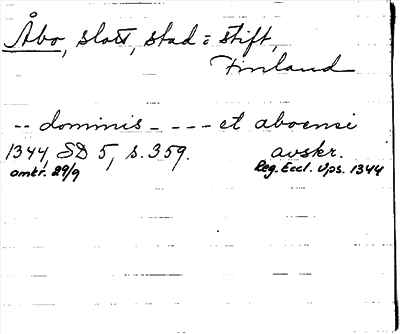 Åbo, slott, stad o stift,
Finland
-- dominis - - - - et aboensi
1344, SD 5, s. 359. avskr.
omkr. 29/9 Reg. Eccl. Ups. 1344